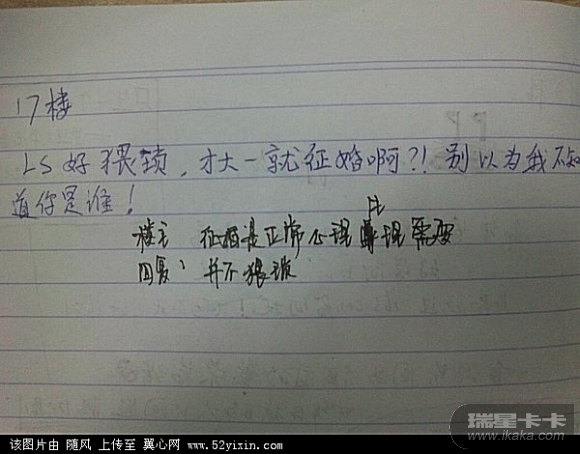 17楼
LS好猥琐，才大一就征婚啊?! 别以为我不知
道你是谁！
楼主 征婚是正常心理 理需要
回复： 并不猥琐
瑞星卡卡
www.ikaka.com
该图片由 随风 上传至 翼心网 www.52yixin.com